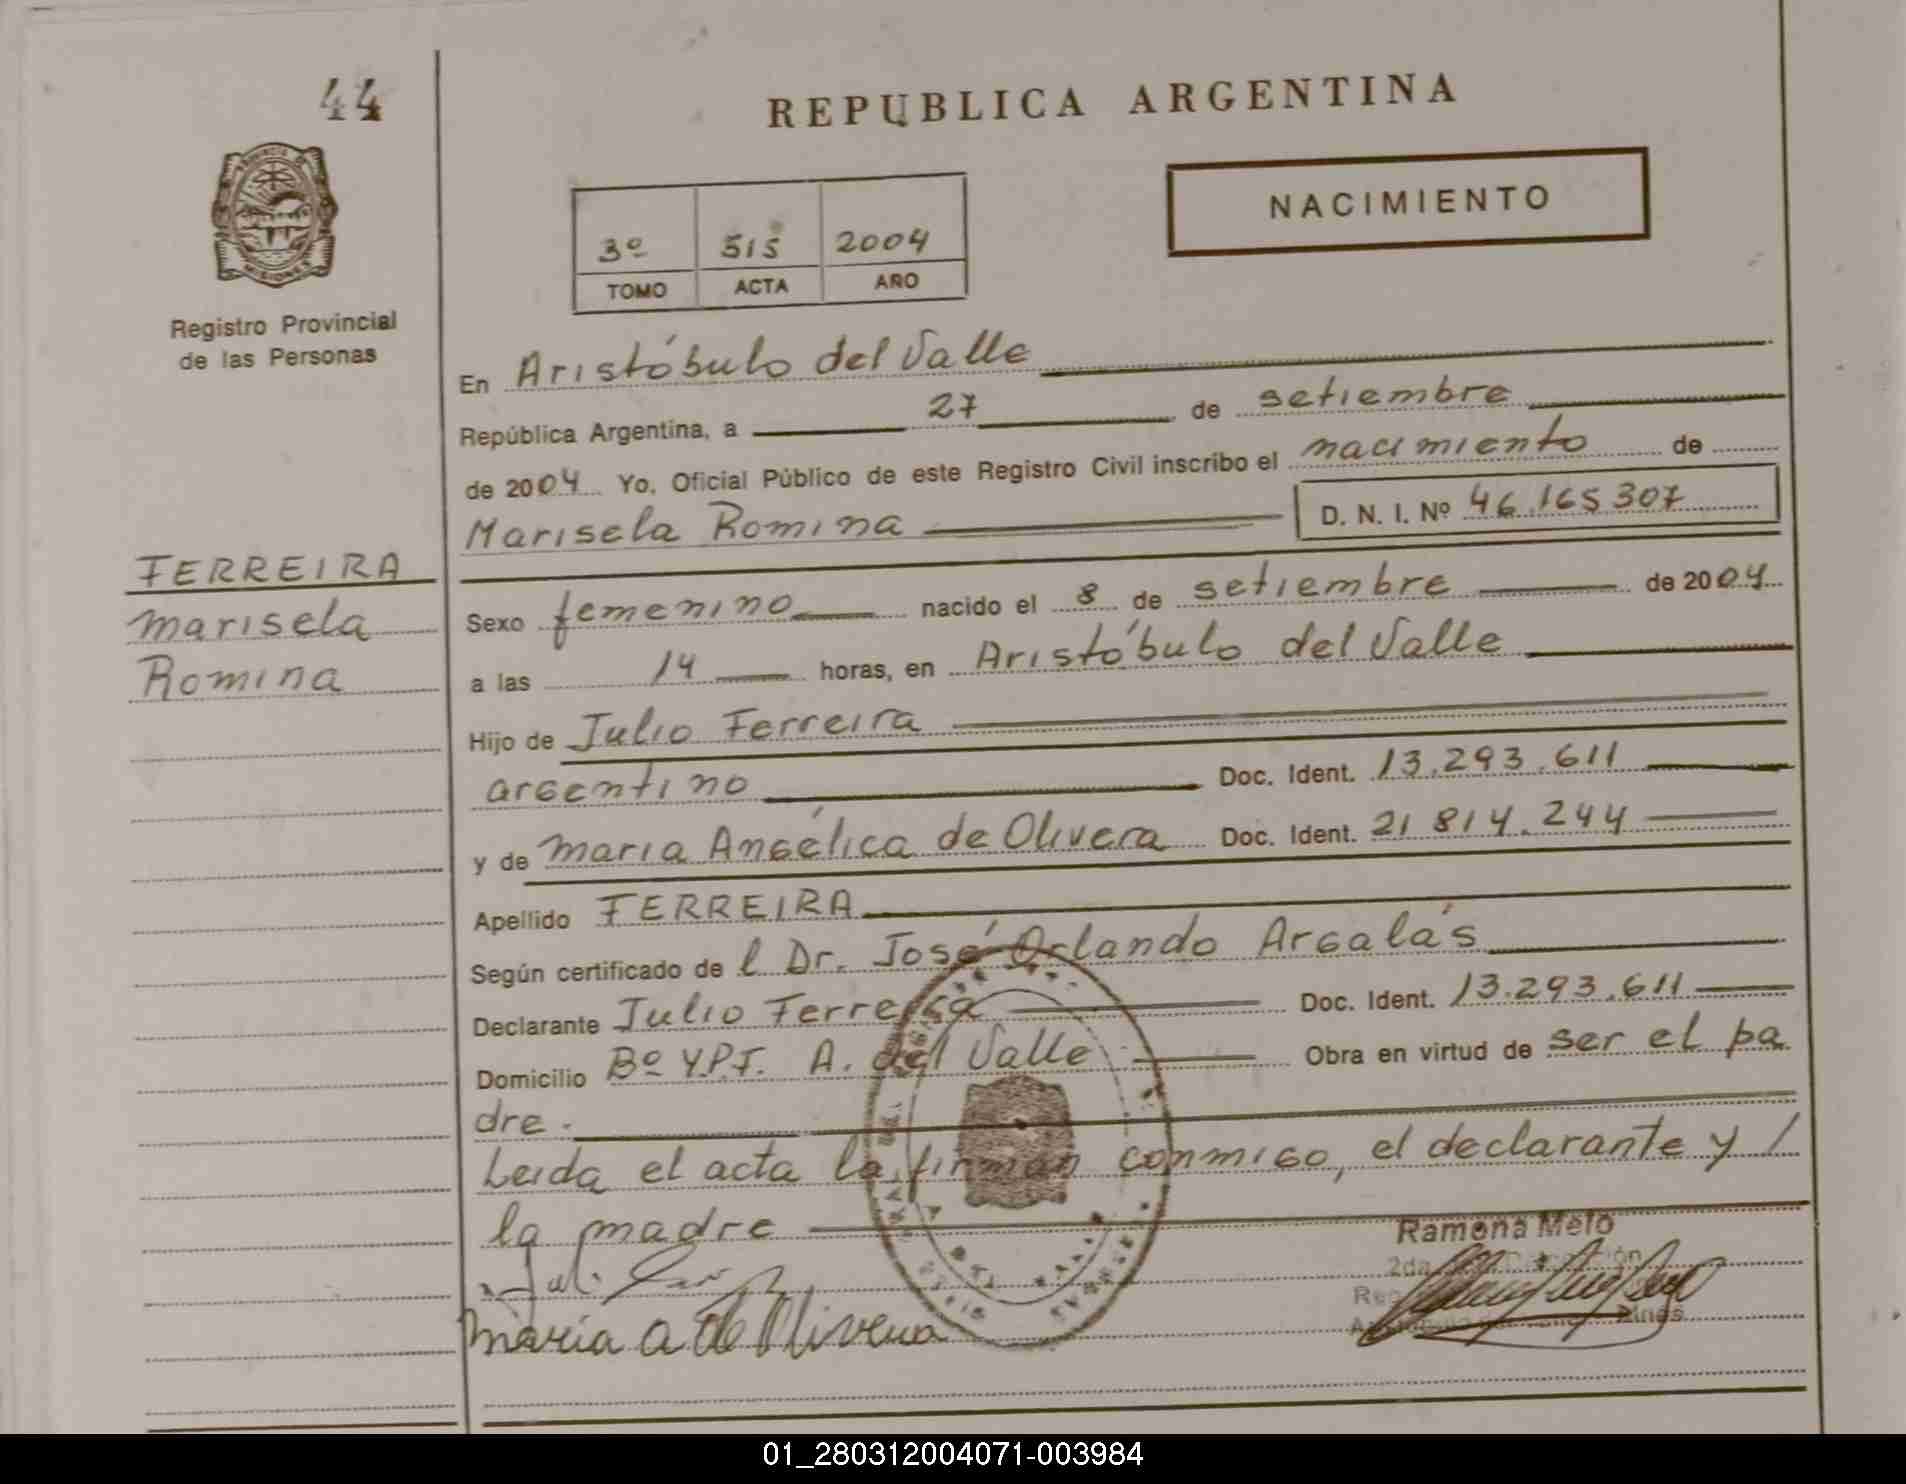 44
REPUBLICA ARGENTINA
PROVINCIA DE
MISIONES
Registro Provincial
de las Personas
3º 515 2004
TOMO ACTA AÑO
NACIMIENTO
En Aristóbulo del Valle
República Argentina, a 27 de setiembre
de 2004 Yo, Oficial Público de este Registro Civil inscribo el nacimiento de
Marisela Romina D. N. I. Nº 46.165307
FERREIRA
Marisela
Romina
Sexo femenino nacido el 8 de setiembre de 2004
a las 14 horas, en Aristóbulo del Valle
Hijo de Julio Ferreira
argentino Doc. Ident. 13.293.611
y de Maria Angélica de Olivera Doc. Ident. 21 814.244
Apellido FERREIRA
Según certificado del Dr. José Orlando Argalás
Declarante Julio Ferreira Doc. Ident. 13.293.611
Domicilio Bº Y.P.F. A. del Valle Obra en virtud de ser el pa
dre.
Leida el acta la firman conmigo, el declarante y /
la madre
Ramona Melo
2da
maria a de Olivera
01_280312004071-003984